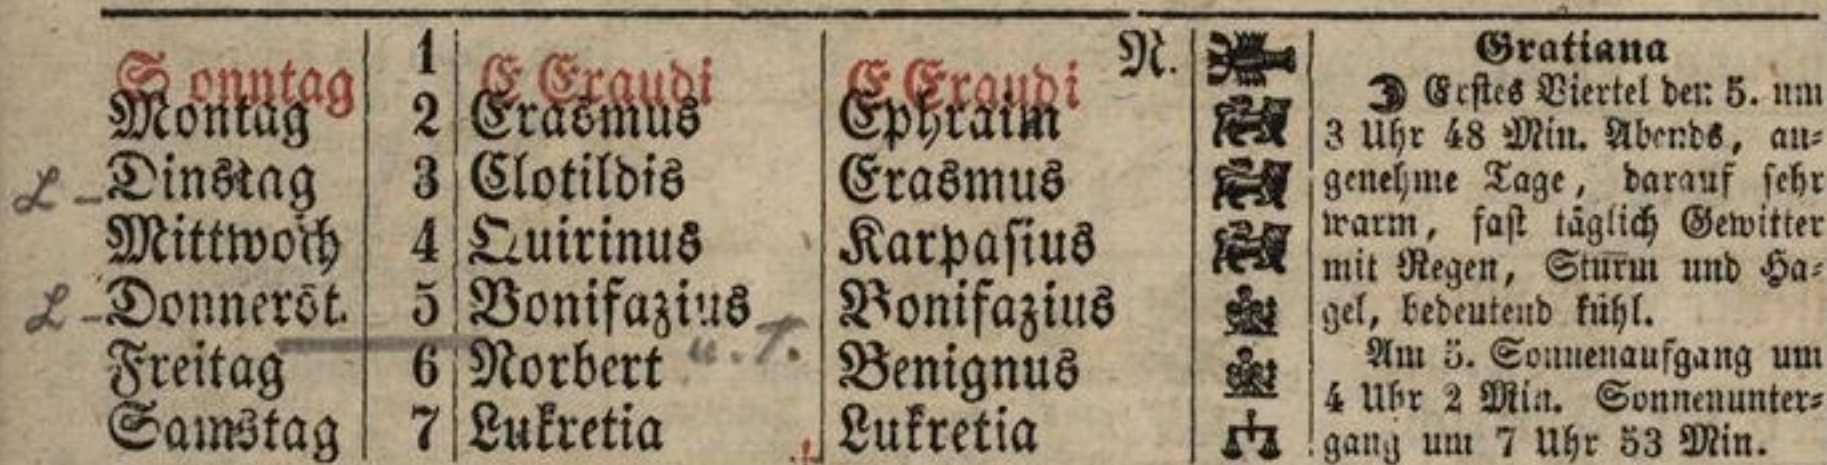 Sonntag 1 E Exaudi E Exaudi N.
Montag 2 Erasmus Ephraim
L - Dinstag 3 Clotildis Erasmus
Mittwoch 4 Quirinus Karpasius
L - Donnerst. 5 Bonifazius Bonifazius
Freitag 6 Norbert u. T. Benignus
Samstag 7 Lukretia Lukretia
Gratiana
Erstes Viertel den 5. um
3 Uhr 48 Min. Abends, an=
genehme Tage, darauf sehr
warm, fast täglich Gewitter
mit Regen, Sturm und Ha=
gel, bedeutend kühl.
Am 5. Sonnenaufgang um
4 Uhr 2 Min. Sonnenunter=
gang um 7 Uhr 53 Min.